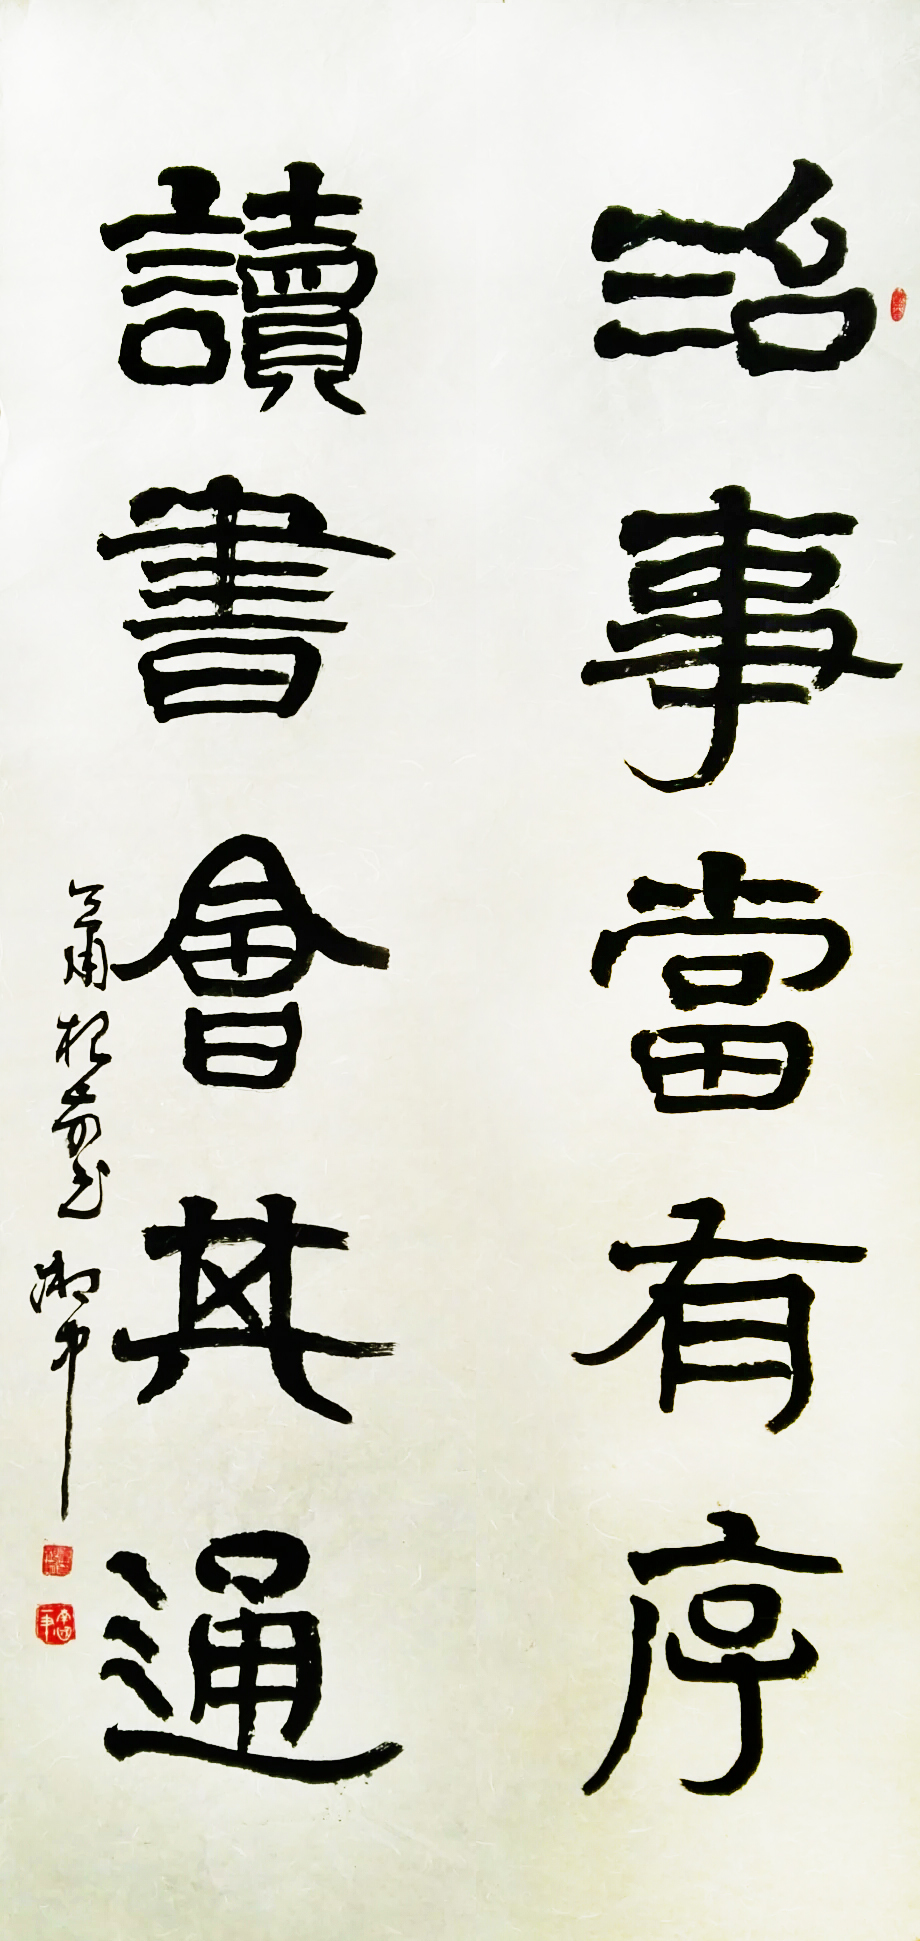 治事當有序
讀書會其通